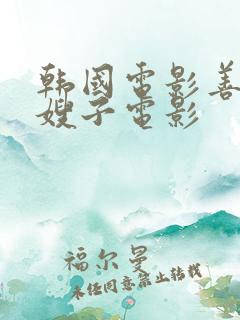 韩国电影善
嫂子电影
福尔曼
未经同意禁止转载